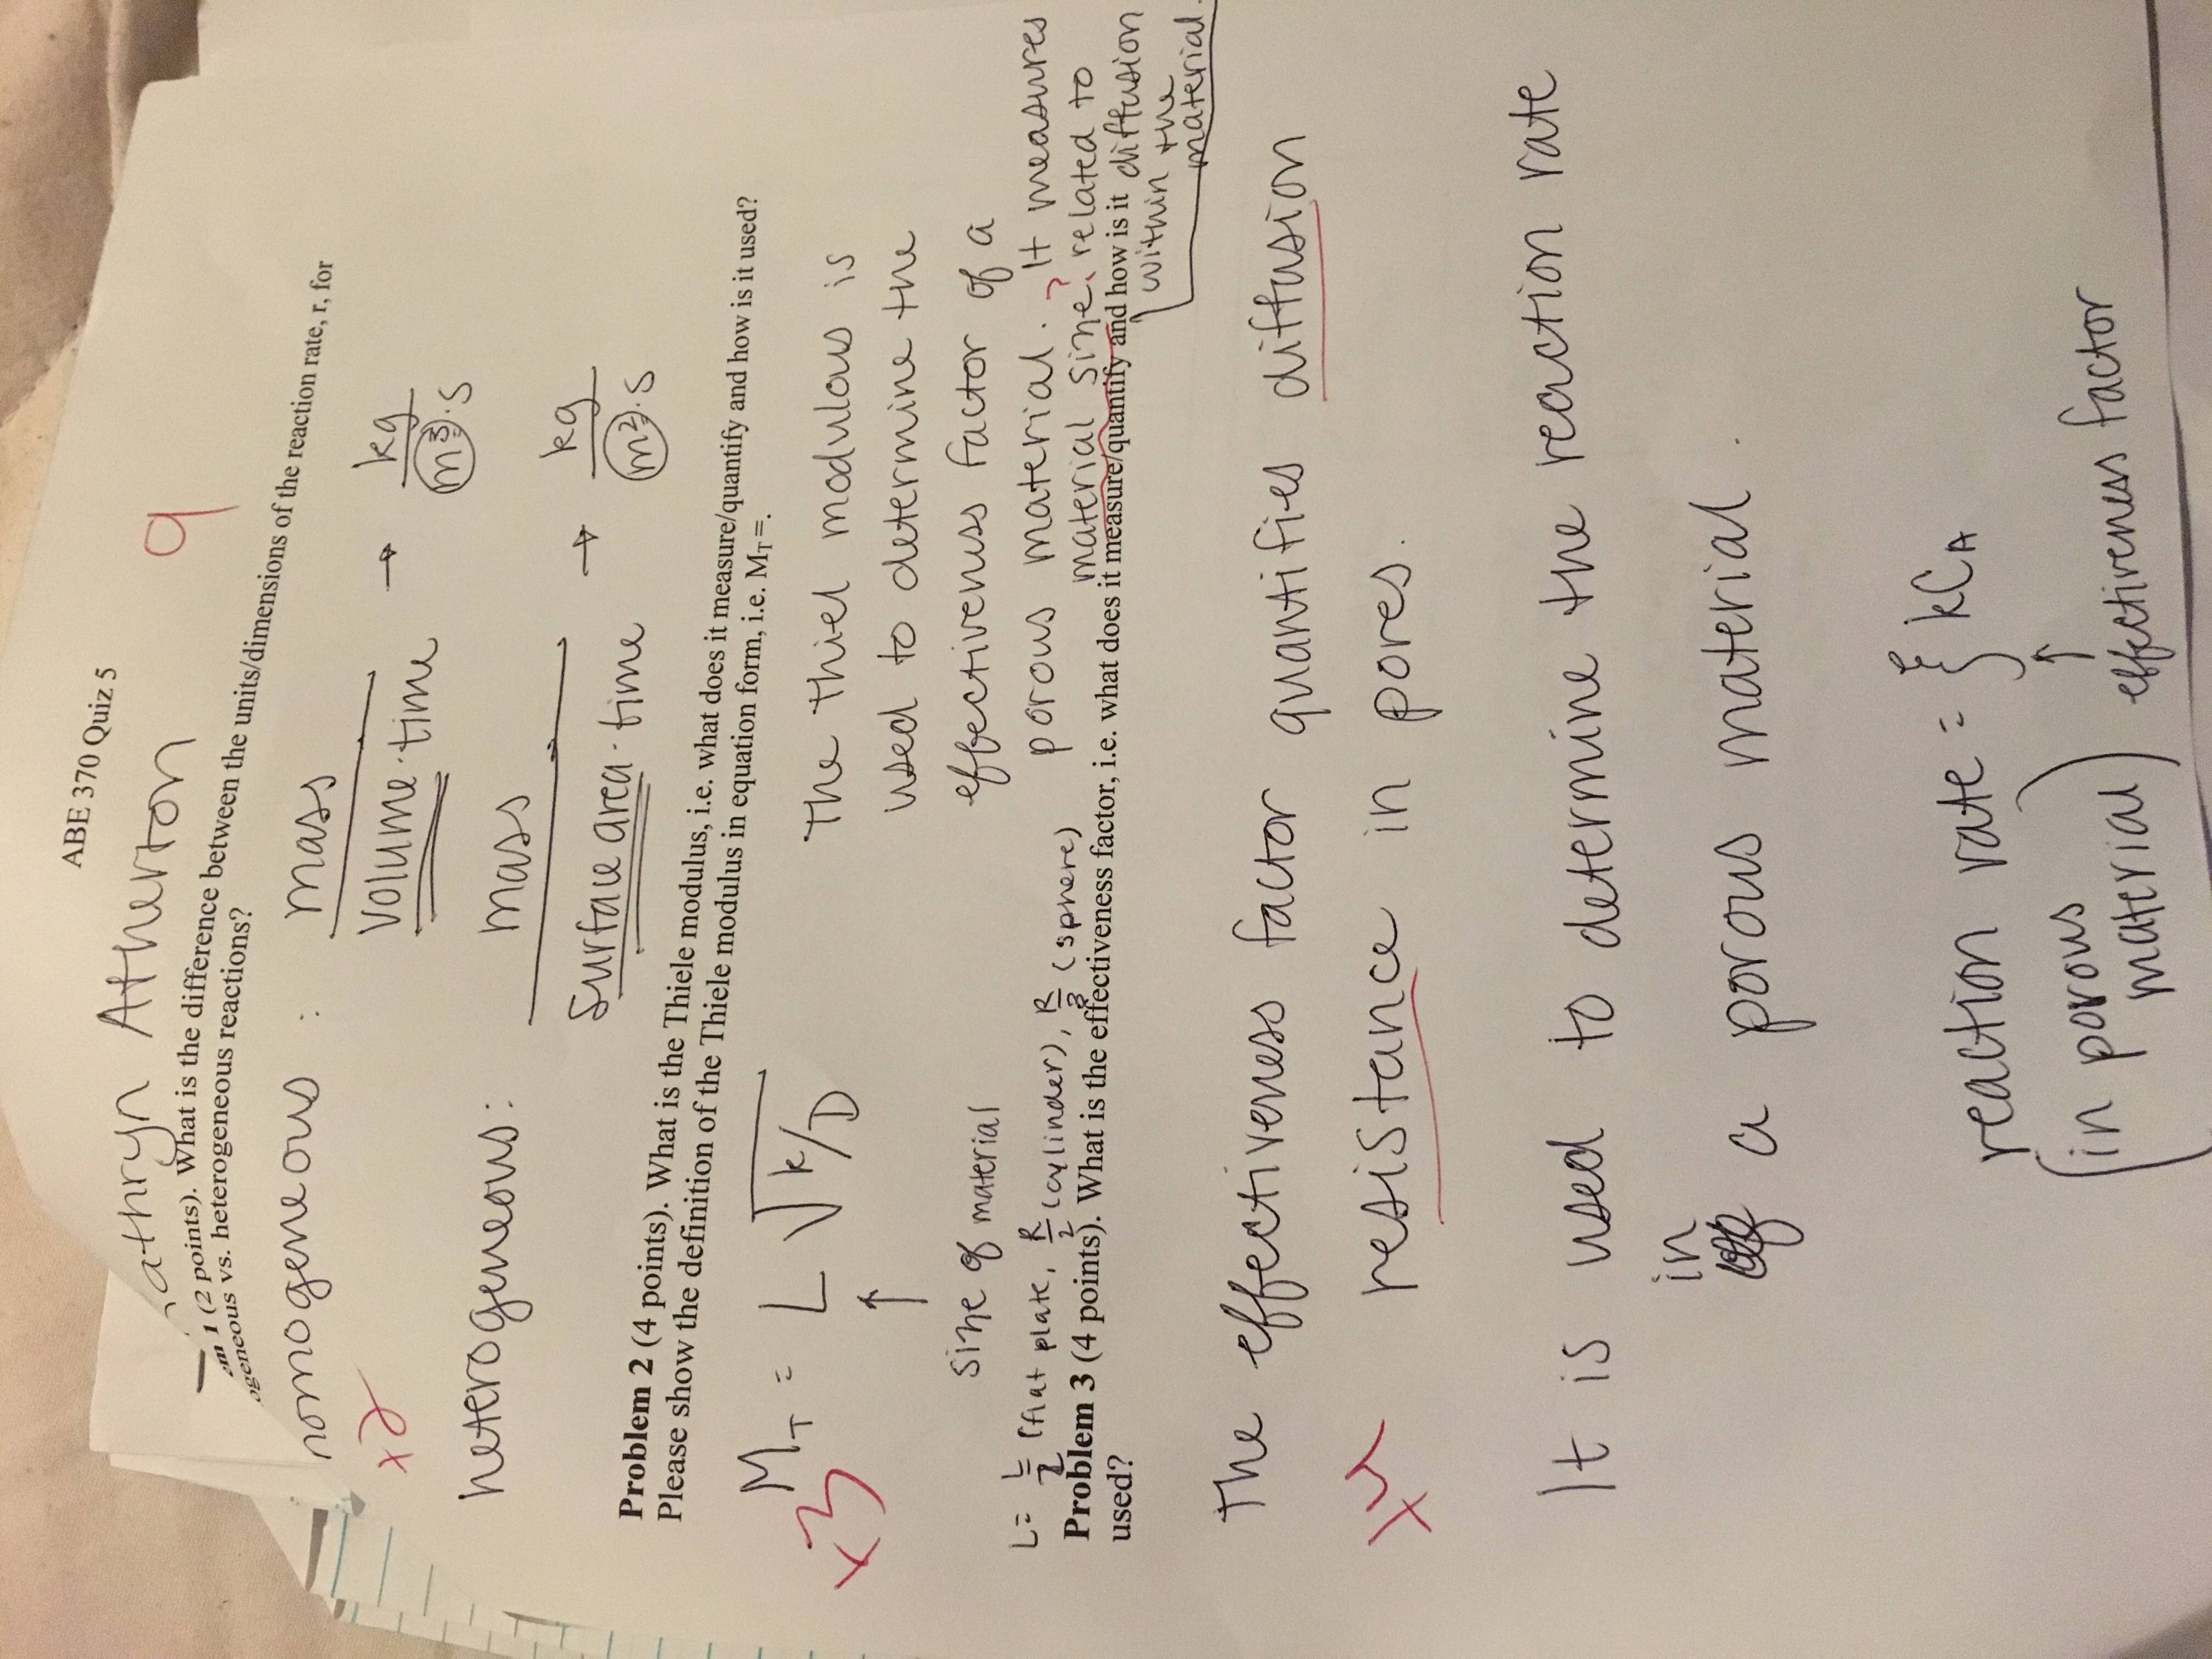 ABE 370 Quiz 5
athryn Atherton
9
em 1 (2 points). What is the difference between the units/dimensions of the reaction rate, r, for
ogeneous vs. heterogeneous reactions?
homogeneous : mass
volume · time → kg
m³ · s
+2
heterogeneous: mass
surface area · time → kg
m² · s
Problem 2 (4 points). What is the Thiele modulus, i.e. what does it measure/quantify and how is it used?
Please show the definition of the Thiele modulus in equation form, i.e. M_T =.
M_T = L √k/D
+3
size of material
L = L/2 (flat plate, R/2 (cylinder), R/3 (sphere)
The thiel modulous is
used to determine the
effectiveness factor of a
porous material. It measures
material size ? related to
diffusion
within the
material.
Problem 3 (4 points). What is the effectiveness factor, i.e. what does it measure/quantify and how is it
used?
The effectiveness factor quantifies diffusion
resistance in pores.
+4
It is used to determine the reaction rate
in
a porous material.
reaction rate = ξ kC_A
(in porous
material)
↑
effectiveness factor